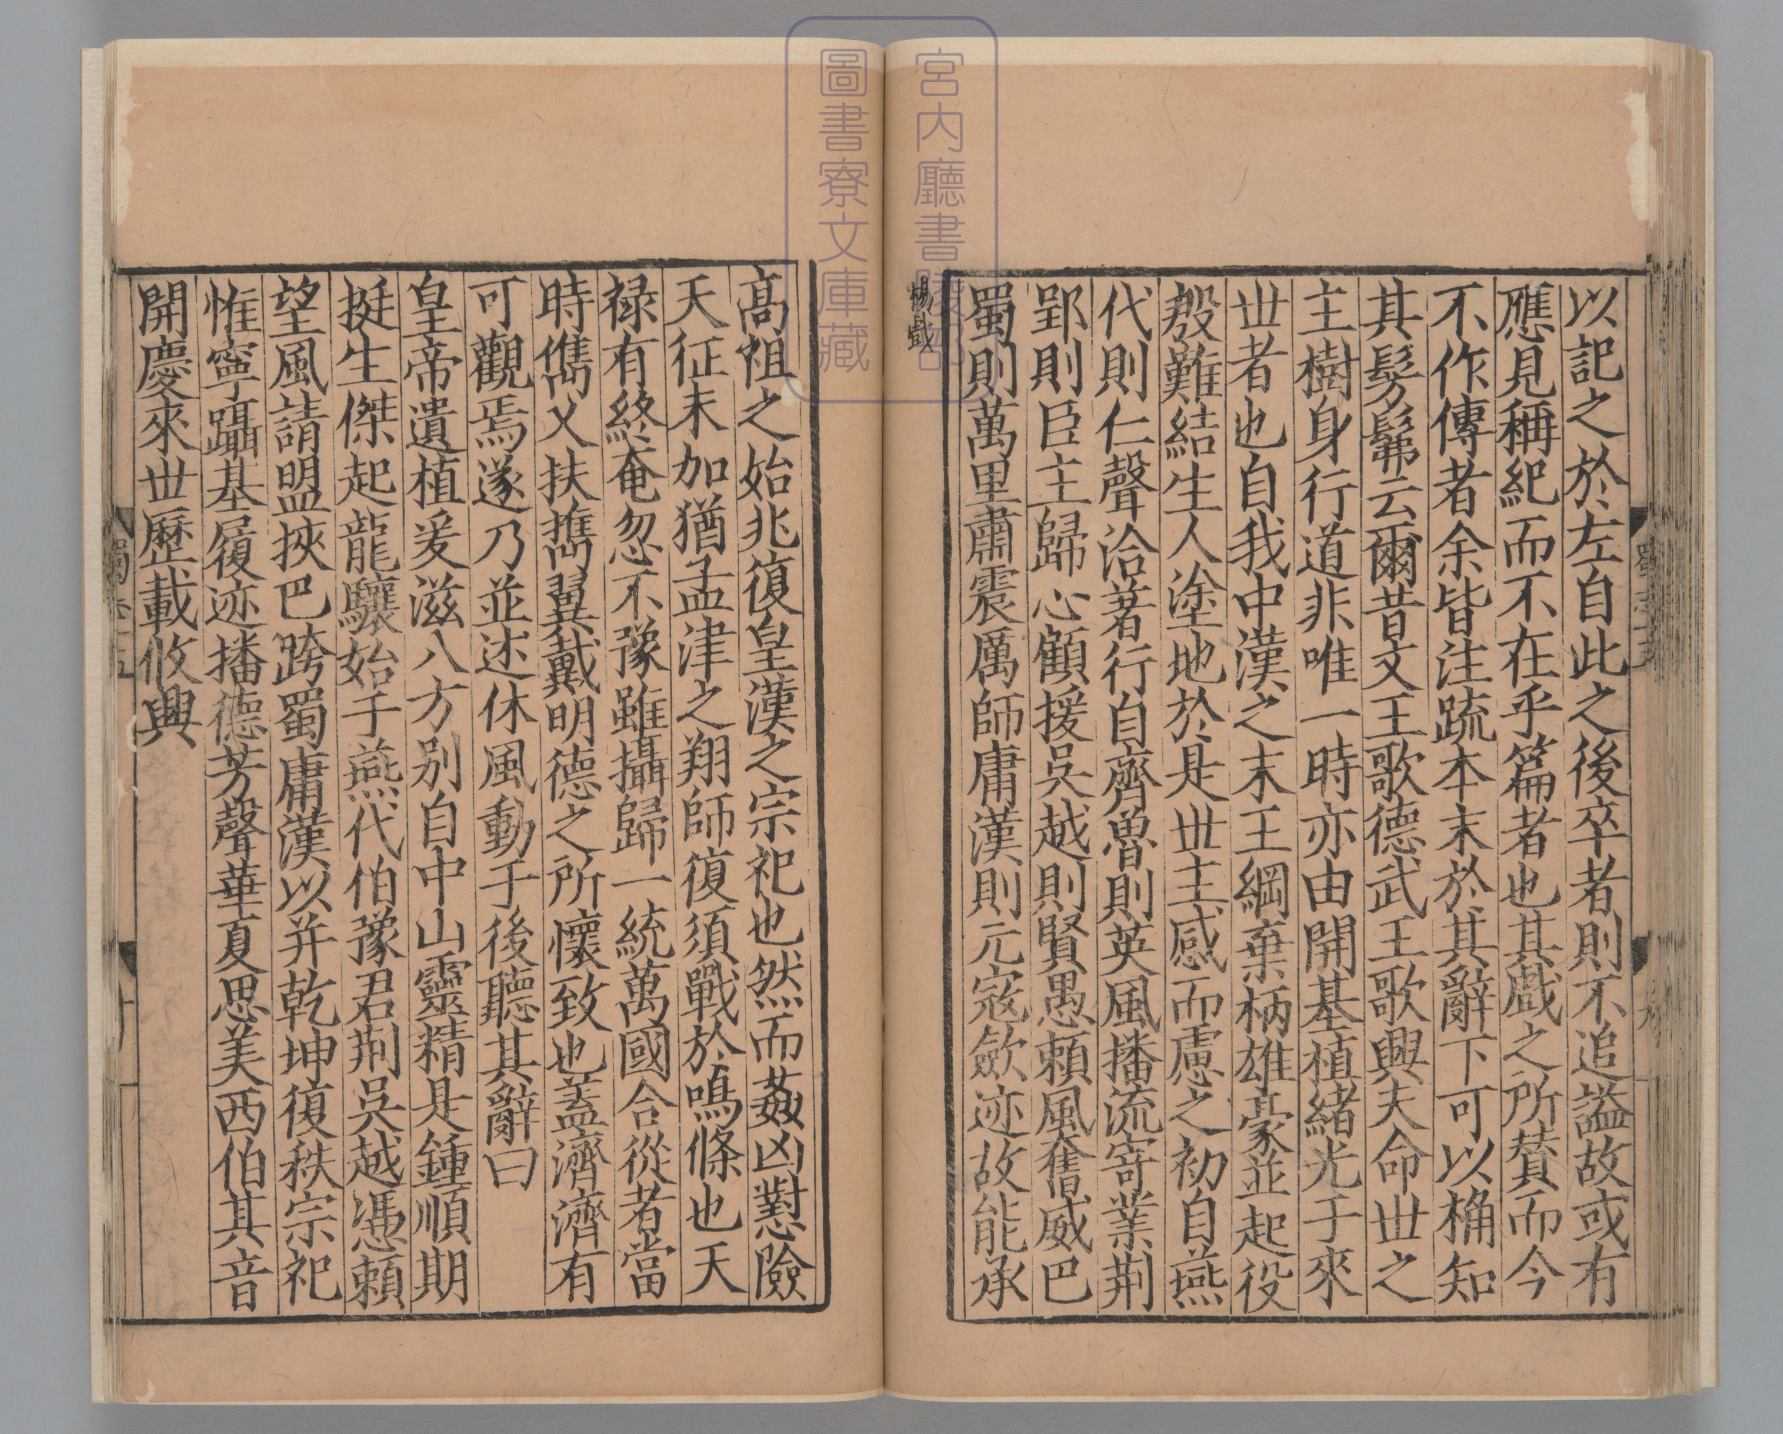 以記之於左自此之後卒者則不追謚故或有
應見稱紀而不在乎篇者也其戲之所賛而今
不作傳者余皆注疏本末於其辭下可以桷知
其髣髴云爾昔文王歌德武王歌興夫命世之
主樹身行道非唯一時亦由開基植緒光于來
世者也自我中漢之末王綱棄柄雄豪並起役
殷難結生人塗地於是世主感而慮之初自燕
代則仁聲洽著行自齊魯則英風播流寄業荆
郢則臣主歸心顧援吳越則賢愚頼風奮威巴
蜀則萬里肅震厲師庸漢則元寇歛迹故能承
楊戲
高祖之始兆復皇漢之宗祀也然而姦凶懟險
天征未加猶孟津之翔師復須戰於鳴條也天
禄有終奄忽不豫雖攝歸一統萬國合從者當
時儁乂扶攜翼戴明德之所懷致也蓋濟濟有
可觀焉遂乃並述休風動于後聽其辭曰
皇帝遺植爰滋八方别自中山靈精是鍾順期
挺生傑起龍驤始于燕代伯豫君荆吳越憑頼
望風請盟挾巴跨蜀庸漢以并乾坤復秩宗祀
惟寧躡基履迹播德芳聲華夏思美西伯其音
開慶來世歷載攸興
宮内廳書陵部
圖書寮文庫藏